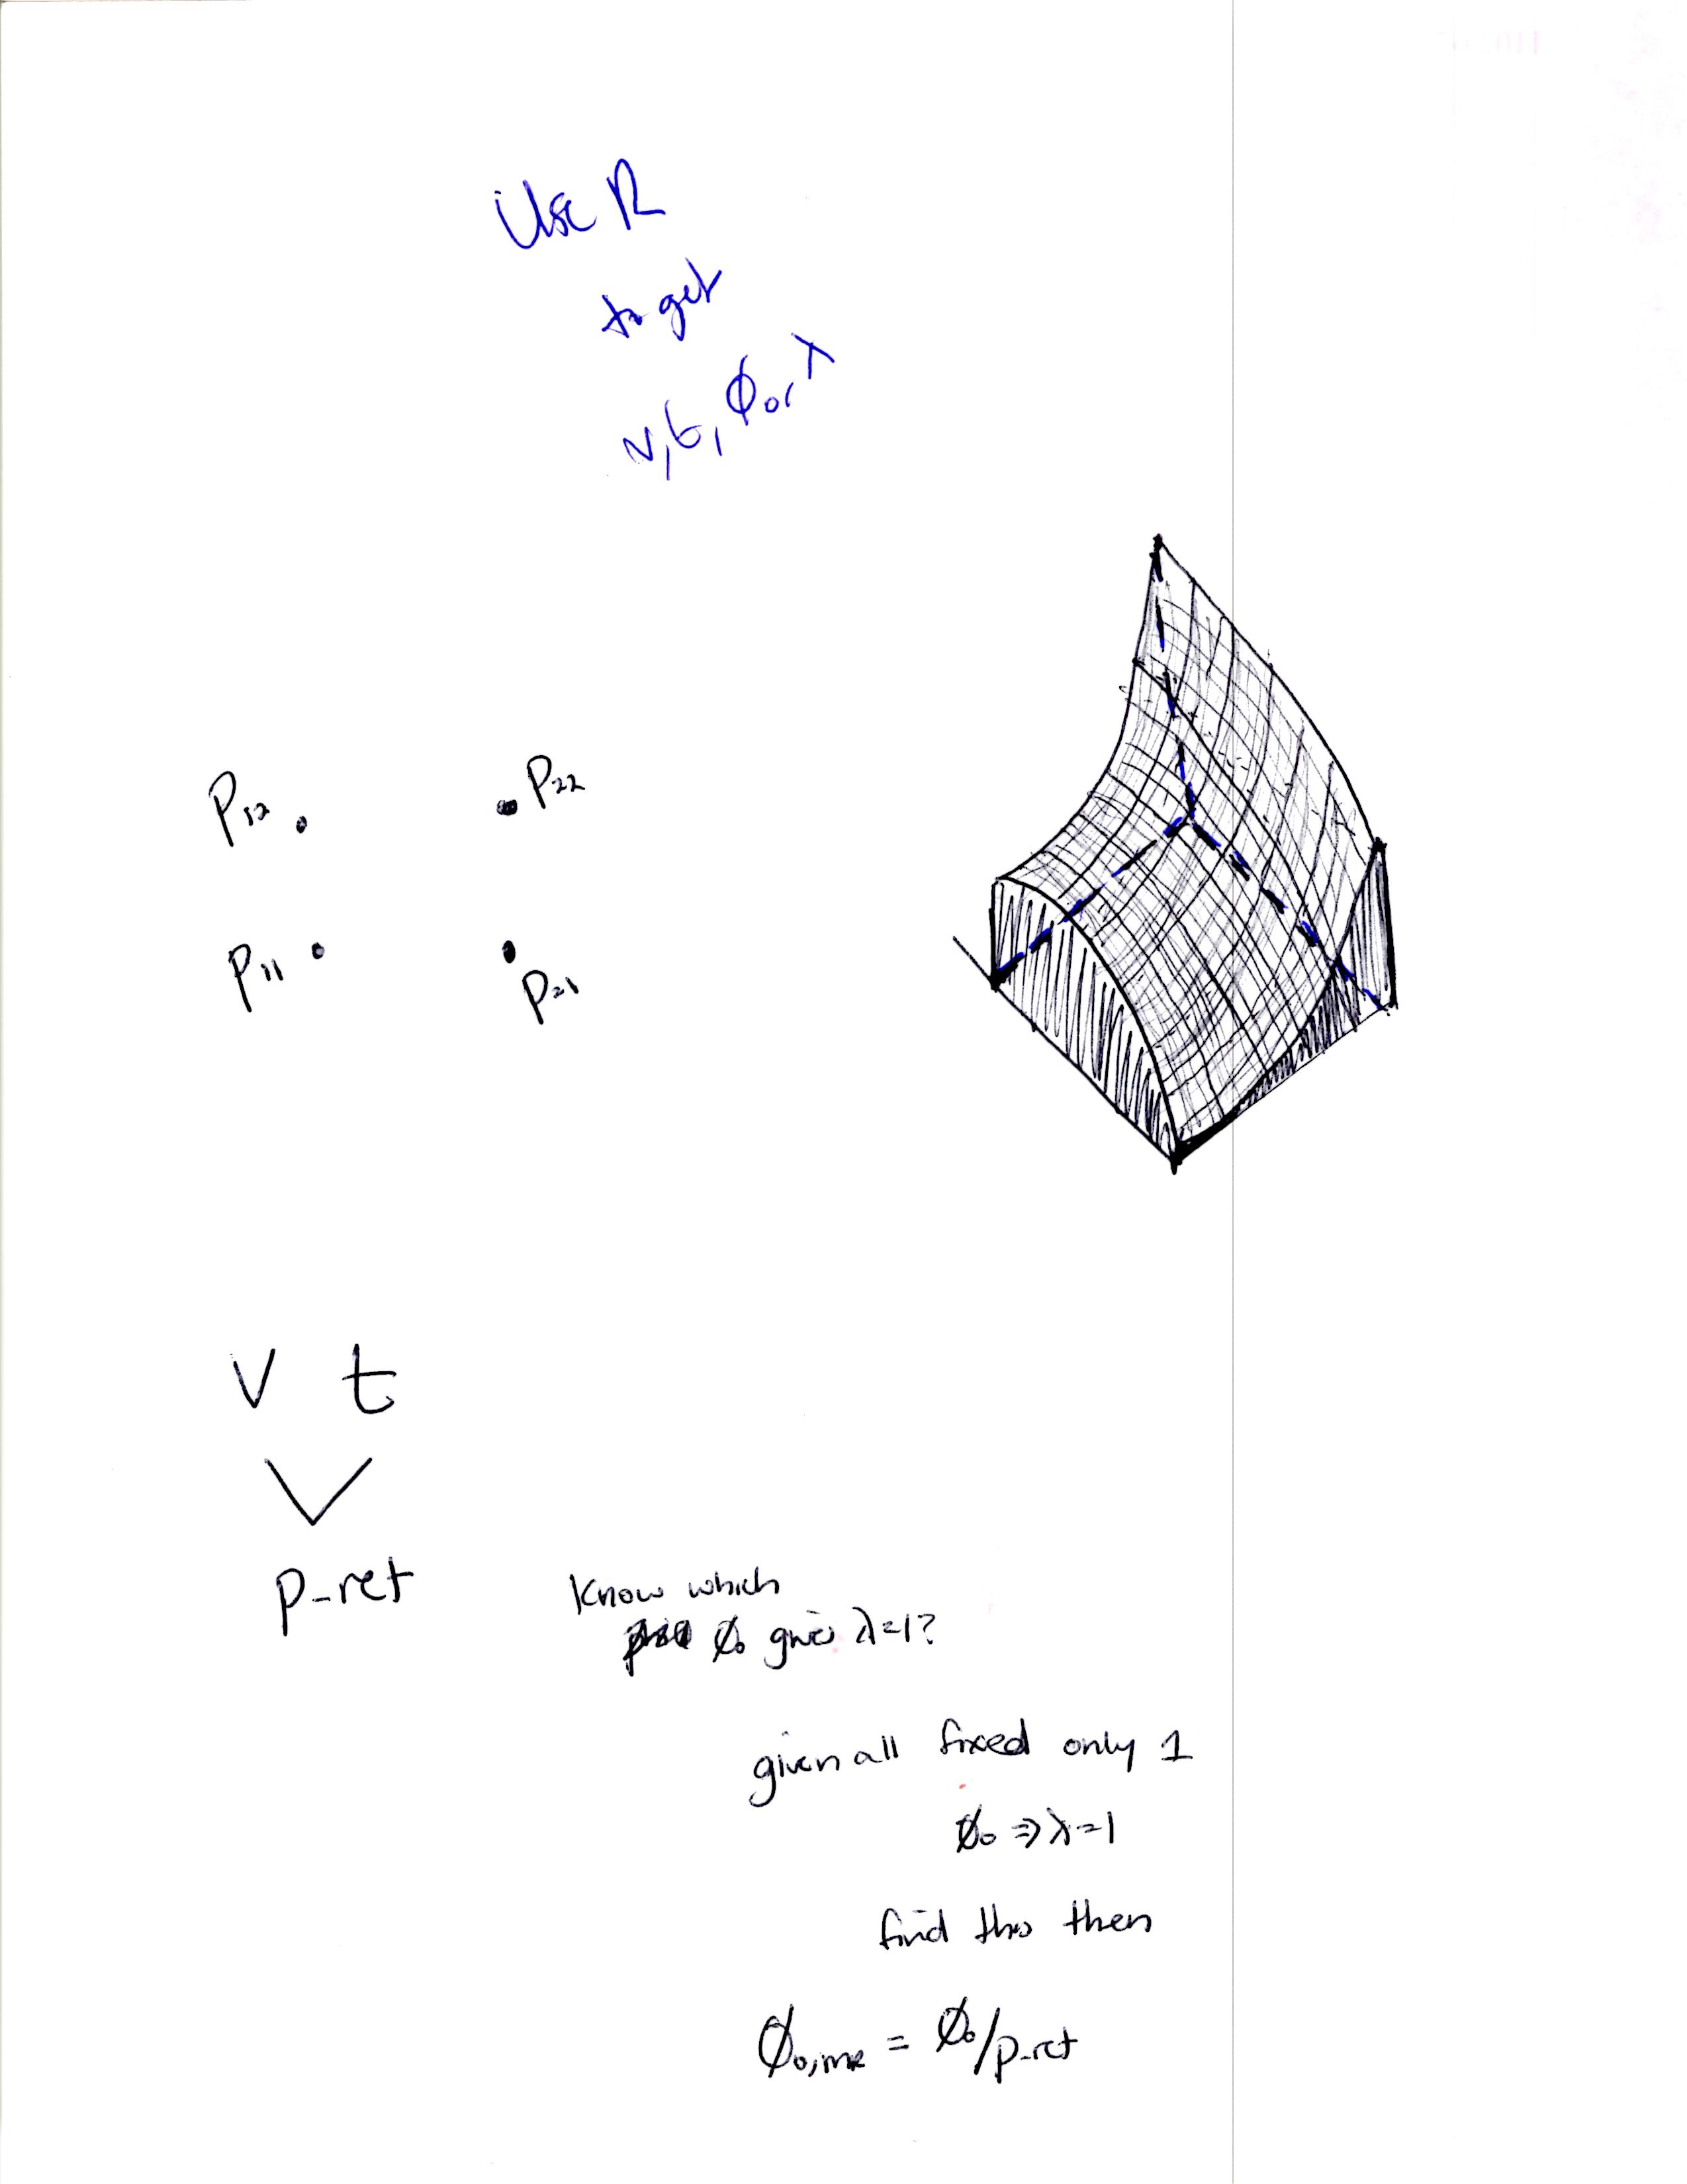 Use R
to get
v, t, ϕ₀, λ
P₁₂
P₂₂
P₁₁
P₂₁
V t
p_ret
Know which
ϕ₀ gives λ=1?
given all fixed only 1
ϕ₀ ⇒ λ=1
find this then
= ϕ₀/p_ret